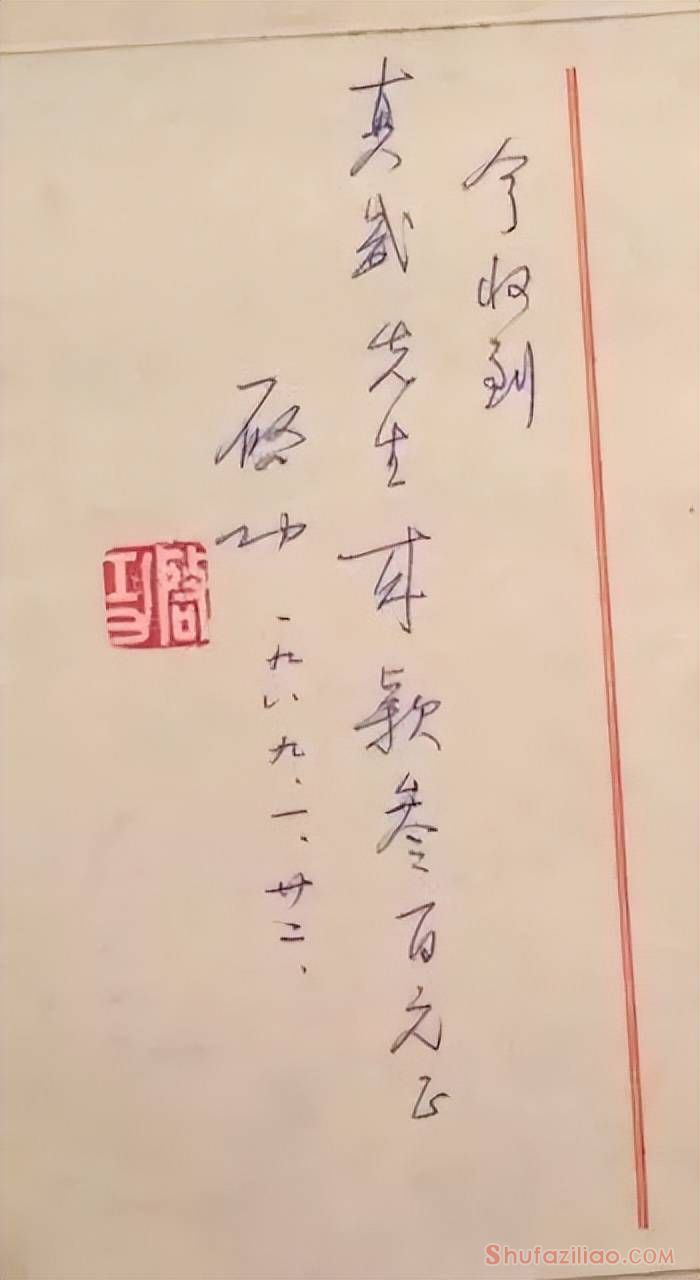 今收到
真先生款叁百元正
启功
一九八九、一、廿二、
啓功
Shufaziliao.com